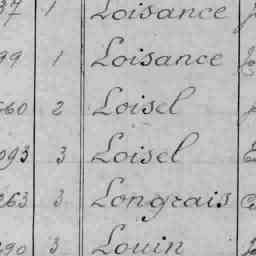 37 1 Loisance
99 1 Loisance
560 2 Loisel
093 3 Loisel
263 3 Longrais
690 3 Louin